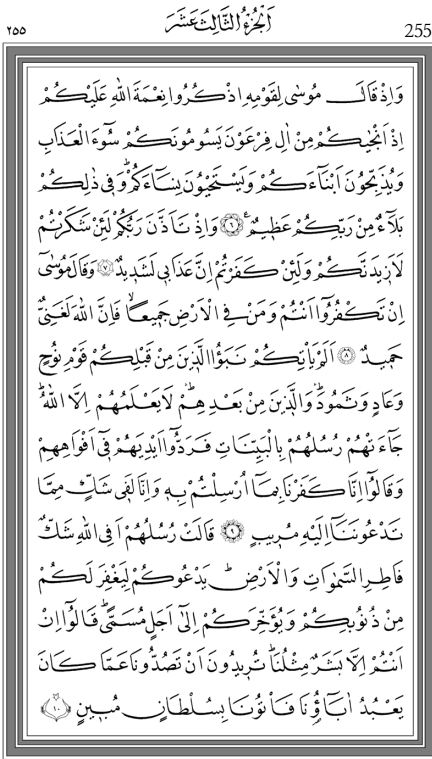 ٢٥٥ اَلْجُزْءُ الثَّالِثَ عَشَرَ 255
وَاِذْ قَالَ مُوسٰى لِقَوْمِهِ اذْكُرُوا نِعْمَةَ اللّٰهِ عَلَيْكُمْ
اِذْ اَنْجٰيكُمْ مِنْ اٰلِ فِرْعَوْنَ يَسُومُونَكُمْ سُٓوءَ الْعَذَابِ
وَيُذَبِّحُونَ اَبْنَٓاءَكُمْ وَيَسْتَحْيُونَ نِسَٓاءَكُمْۜ وَف۪ي ذٰلِكُمْ
بَلَٓاءٌ مِنْ رَبِّكُمْ عَظ۪يمٌ۟ ﴿٦﴾ وَاِذْ تَاَذَّنَ رَبُّكُمْ لَئِنْ شَكَرْتُمْ
لَاَز۪يدَنَّكُمْ وَلَئِنْ كَفَرْتُمْ اِنَّ عَذَاب۪ي لَشَد۪يدٌ ﴿٧﴾ وَقَالَ مُوسٰٓى
اِنْ تَكْفُرُٓوا اَنْتُمْ وَمَنْ فِي الْاَرْضِ جَم۪يعًاۙ فَاِنَّ اللّٰهَ لَغَنِيٌّ
حَم۪يدٌ ﴿٨﴾ اَلَمْ يَأْتِكُمْ نَبَؤُا الَّذ۪ينَ مِنْ قَبْلِكُمْ قَوْمِ نُوحٍ
وَعَادٍ وَثَمُودَۜ وَالَّذ۪ينَ مِنْ بَعْدِهِمْۜ لَا يَعْلَمُهُمْ اِلَّا اللّٰهُۜ
جَٓاءَتْهُمْ رُسُلُهُمْ بِالْبَيِّنَاتِ فَرَدُّٓوا اَيْدِيَهُمْ ف۪ٓي اَفْوَاهِهِمْ
وَقَالُٓوا اِنَّا كَفَرْنَا بِمَٓا اُرْسِلْتُمْ بِه۪ وَاِنَّا لَف۪ي شَكٍّ مِمَّا
تَدْعُونَنَٓا اِلَيْهِ مُر۪يبٍ ﴿٩﴾ قَالَتْ رُسُلُهُمْ اَفِي اللّٰهِ شَكٌّ
فَاطِرِ السَّمٰوَاتِ وَالْاَرْضِۜ يَدْعُوكُمْ لِيَغْفِرَ لَكُمْ
مِنْ ذُنُوبِكُمْ وَيُؤَخِّرَكُمْ اِلٰٓى اَجَلٍ مُسَمًّىۜ قَالُٓوا اِنْ
اَنْتُمْ اِلَّا بَشَرٌ مِثْلُنَاۜ تُر۪يدُونَ اَنْ تَصُدُّونَا عَمَّا كَانَ
يَعْبُدُ اٰبَٓاؤُ۬نَا فَأْتُونَا بِسُلْطَانٍ مُب۪ينٍ ﴿١٠﴾